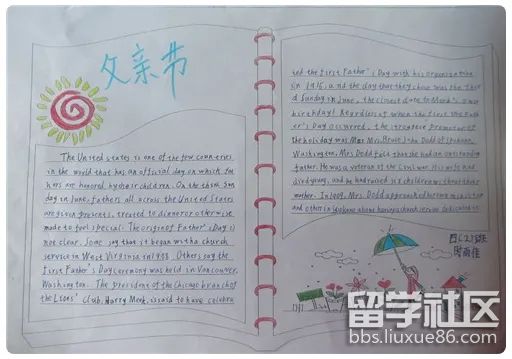 父亲节
The United states is one of the few countries
in the world that has an official day on which fat
hers are honored by their children. On the third Sun
day in June, fathers all across the United States
are given presents, treated to dinner or otherwise
made to feel special. The origin of Father's Day is
not clear. Some say that it began with a church
service in West Virginia in 1908. Others say the
first Father's Day ceremony was held in Vancouver,
Washington. The president of the Chicago branch of
the Lions' Club, Harry Meek, is said to have celebra
ted the first Father's Day with his organization
in 1915, and the day that they chose was the thir
d Sunday in June, the closest date to Meek's own
birthday! Regardless of when the first true Fath
er's Day occurred, the strongest promoter of
the holiday was Mrs. Bruce John Dodd of Spokane,
Washington. Mrs. Dodd felt that she had an outstanding
father. He was a veteran of the Civil War. His wife
died young, and he had raised six children without their
mother. In 1909, Mrs. Dodd approached her own minister
and others in Spokane about having a church service dedicated to
四(2)班
留学社区
bbs.liuxue86.com